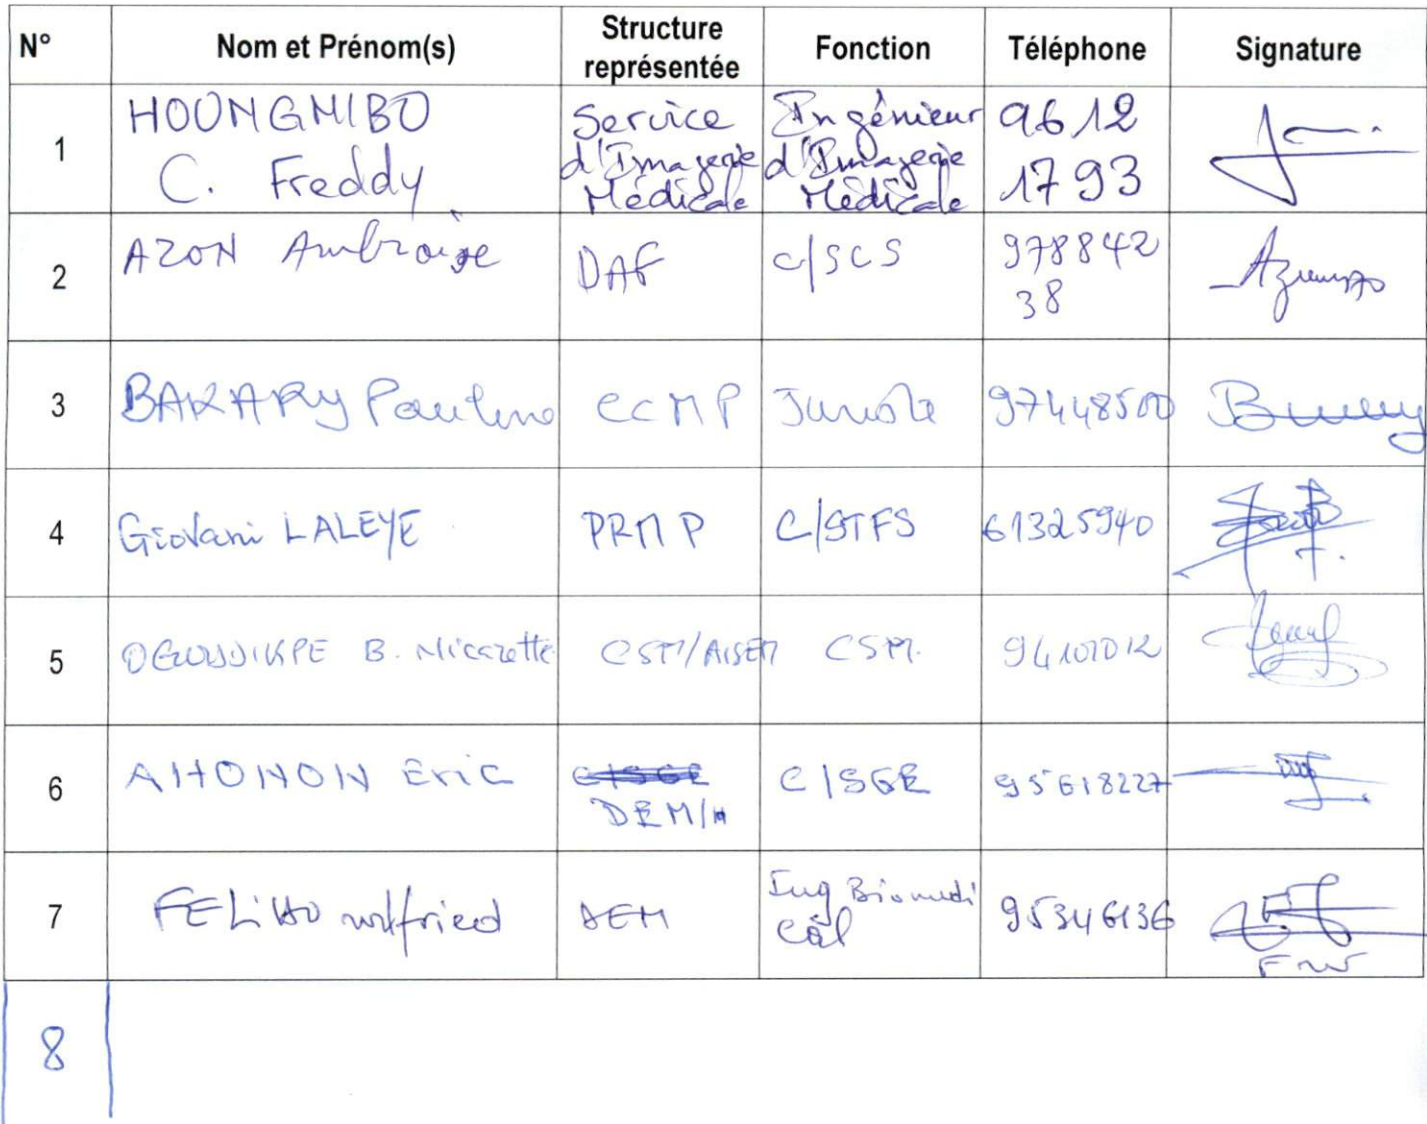 N° Nom et Prénom(s) Structure représentée Fonction Téléphone Signature
1 HOUNGNIBO C. Freddy Service d'Imagerie Médicale Ingénieur d'Imagerie Médicale 9612 1793
2 AZON Ambroise DAF C/SCS 978842 38
3 BAKARY Pauline CCMP Juriste 97448500
4 Giovani LALEYE PRMP C/STFS 61325940
5 B. Micarette CSM/AISEM CSM.
6 AHONON Eric DEM/H C/SGE 95618227
7 FELIHO wilfried DEM Ing Biomédi cal 95346136
FW
8